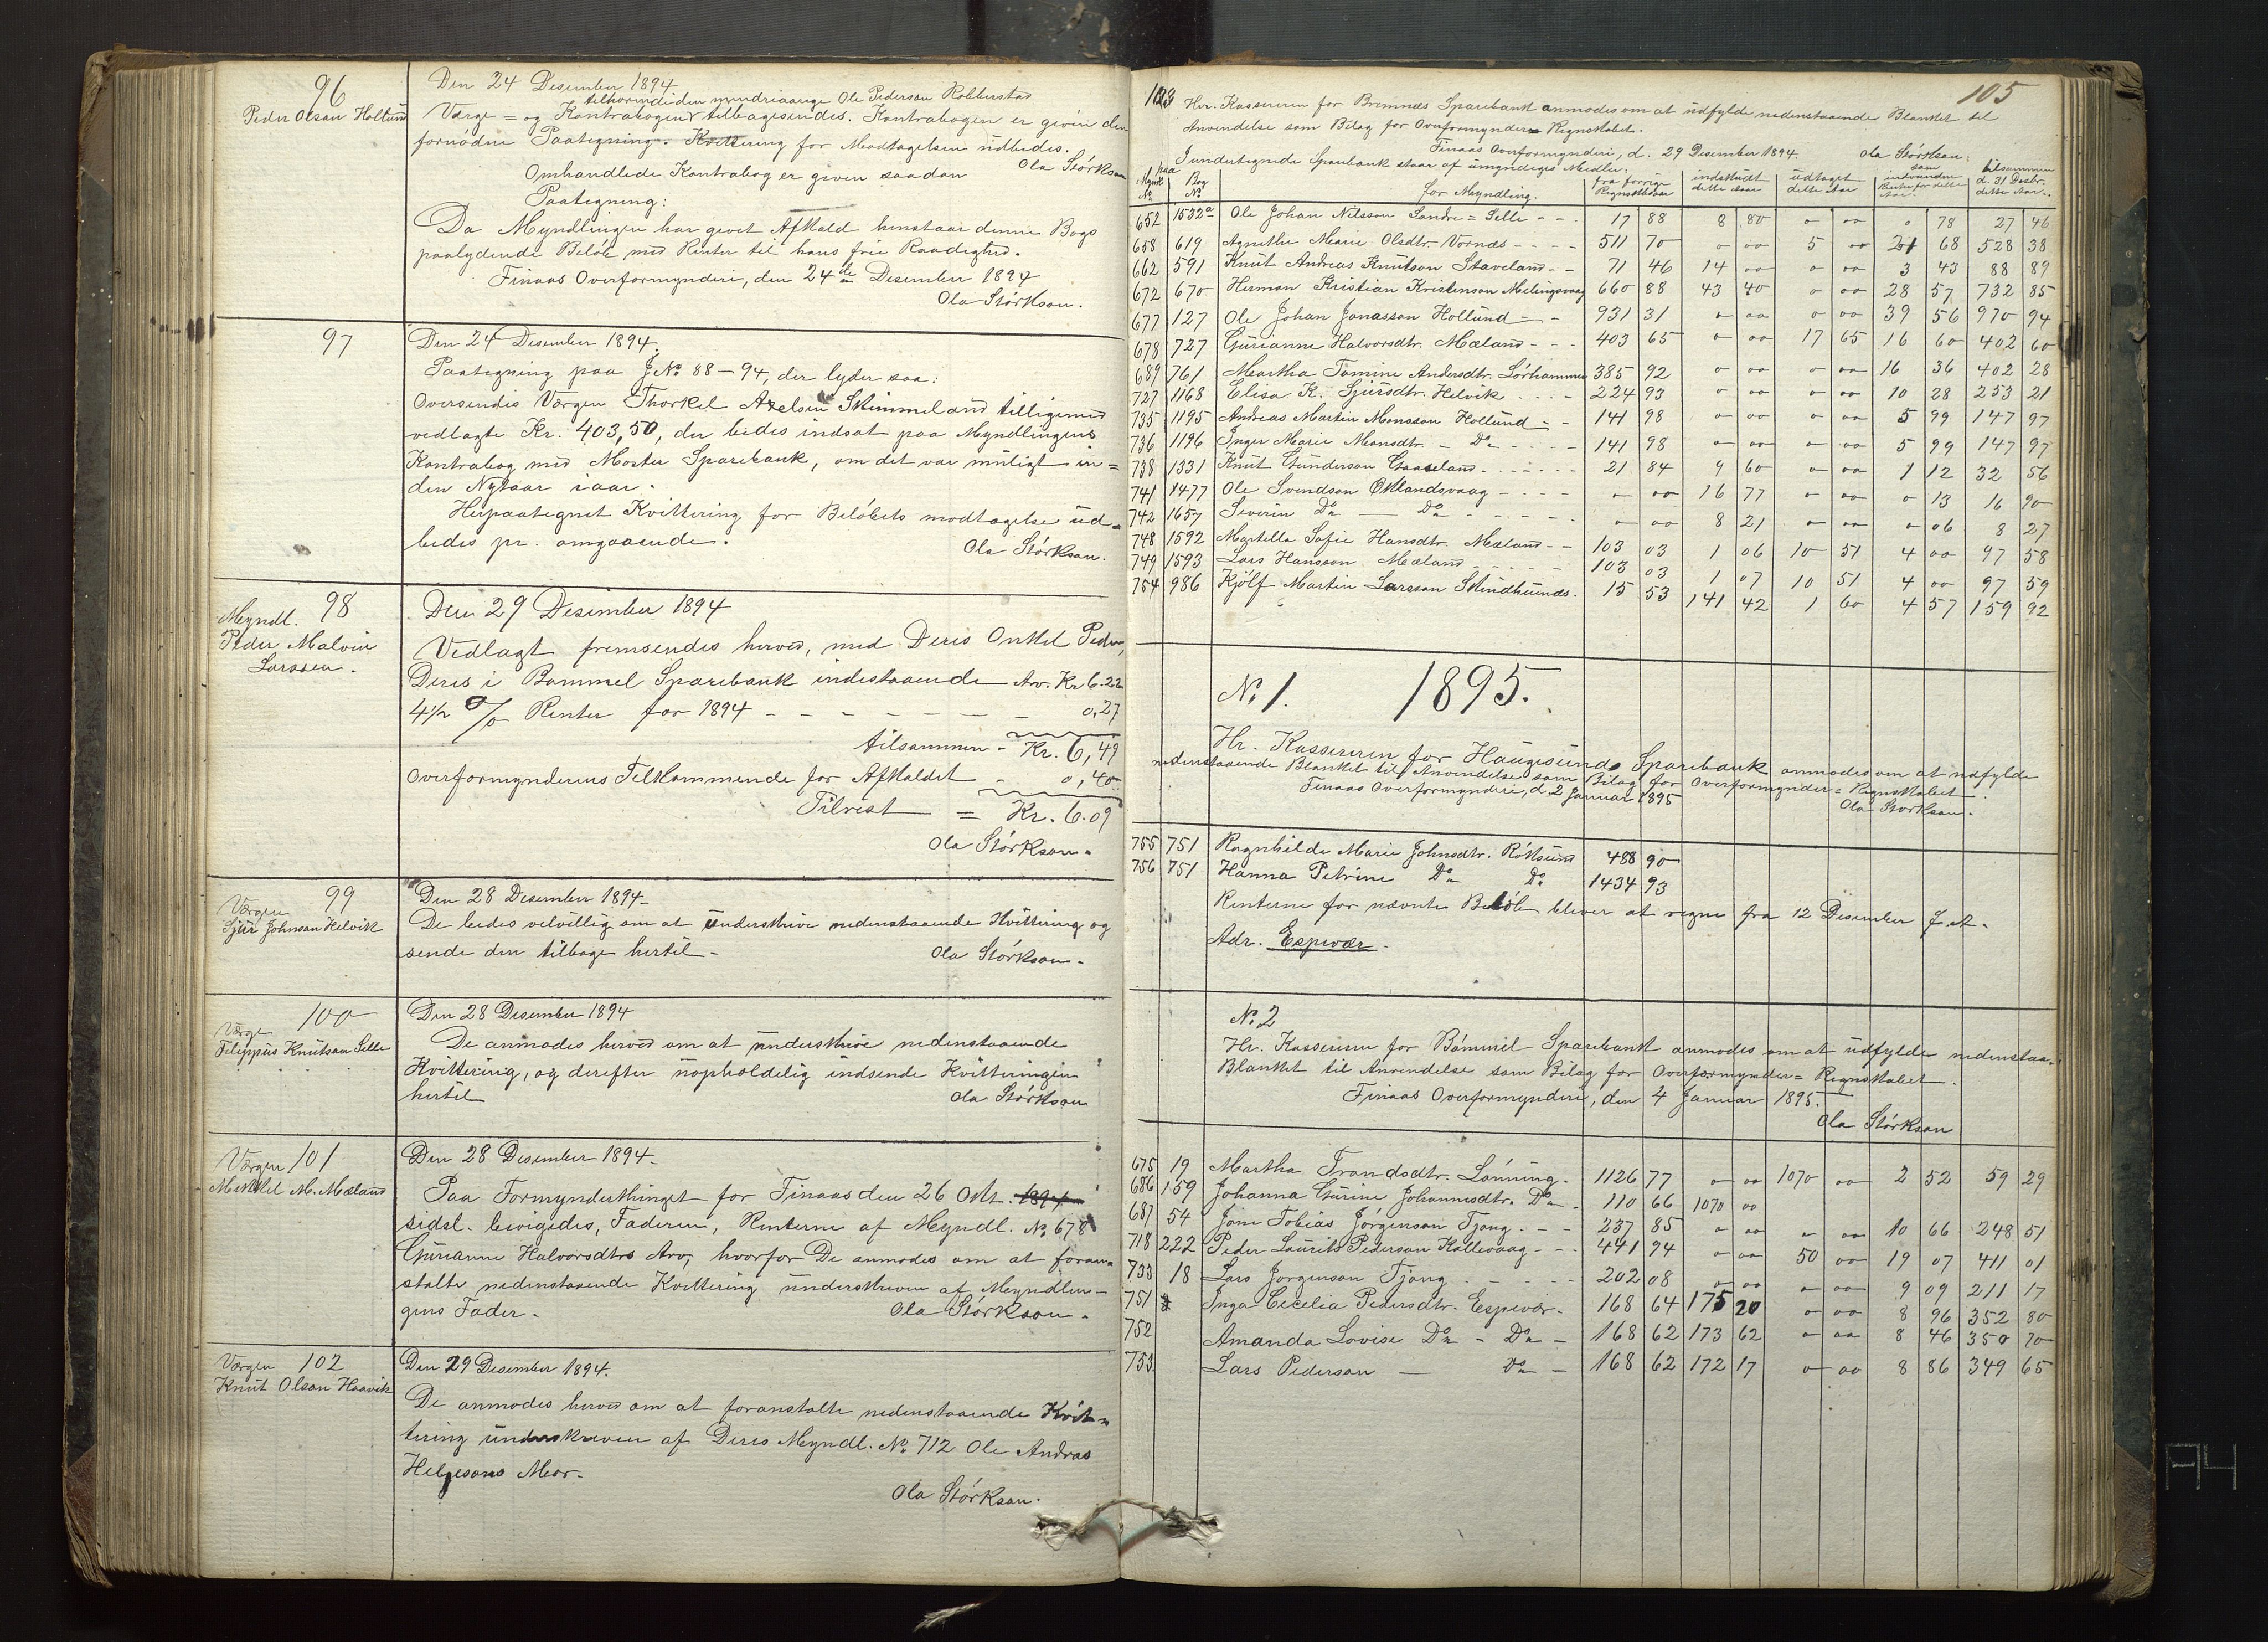 96
Peder Olsan Hollund
Den 24 Desember 1894
tilhorende den mindreaarige Ole Pederson Robberstad
Værge = og Kontrabogen tilbagesendes. Kontrabogen er given den
fornødne Paategning. Kvittering for Modtagelsen udbedes.
Ola Störkson
Omhandlede Kontrabog er given saadan
Paategning:
Da Myndlingen har givet Afkald henstaar denne Bogs
paalydende Beløb med Renter til hans frie Raadighed.
Finaas Overformynderi, den 24de Desember 1894
Ola Störkson.
97
Den 24 Desember 1894.
Paategning paa J.No. 88-94, der lyder saa:
Oversendes Værgen Thorkel Axelsen Skimmeland tilligemed
vedlagte Kr. 403,50, der bedes indsat paa Myndlingens
Kontrabog med Moster Sparebank, om det var muligt in=
den Nytaar iaar.
Herpaategnet Kvittering for Beløbets modtagelse ud=
bedes pr. omgaaende.
Ola Störkson.
98
Myndl.
Peder Malvin
Larssen.
Den 29 Desember 1894
Vedlagt fremsendes herved, med Deres Onkel Peder,
Deres i Bømmel Sparebank indestaaende Arv. Kr 6.22
4½ % Renter for 1894 - - - - - - - 0,27
tilsammen - Kr. 6,49
Overformynderens Tilkommende for Afkaldet - 0,40
Tilrest = Kr. 6.09
Ola Störkson.
99
Værgen
Sjur Johnson Helvik
Den 28 Desember 1894-
De bedes velvillig om at underskrive nedenstaaende Kvittering og
sende den tilbage hertil - Ola Störkson.
100
Værge
Filippus Knutson Selle
Den 28 Desember 1894
De anmodes herved om at underskrive nedenstaaende
Kvittering, og derefter uopholdelig indsende Kvitteringen
hertil Ola Störkson
Værgen 101
Mikkel M. Mæland
Den 28 Desember 1894-
Paa Formynderthinget for Finaas den 26 Okt. 1894
sidsl. bevigedes, Faderen, Renterne af Myndl. No. 678
Gurianne Halvorsdtrs Arv, hvorfor De anmodes om at foran=
stalte nedenstaaende Kvittering underskreven af Myndlin-
gens Fader. Ola Störkson.
Værgen 102
Knut Olson Haavik
Den 29 Desember 1894.
De anmodes herved om at foranstalte nedenstaaende Kvit=
tering underskreven af Deres Myndl. No. 712 Ole Andreas
Helgesons Mor.
Ola Störkson.
103
105
Hr. Kassereren for Bremnes Sparebank anmodes om at udfylde nedenstaaende Blanket til
Anvendelse som Bilag for Overformynder= Regnskabet.
Finaas Overformynderi, d. 29 Desember 1894. Ola Störkson.
I undertegnede Sparebank staar af umyndiges Midler:
Myndl. No. paa Bog No. for Myndling. fra forrige Regnskabsaar indskudt dette aar udtaget dette aar som indvunden Rente for dette Aar tilsammen d. 31 Desbr. dette Aar.
652 1532a Ole Johan Nilsson Søndre=Selle - - - 17 88 8 80 0 00 0 78 27 46
658 619 Agnethe Marie Olsdtr. Vornæs - - - - 511 70 0 00 5 00 21 68 528 38
662 591 Knut Andreas Knutson Staveland - - 71 46 14 00 0 00 3 43 88 89
672 670 Herman Kristian Kristenson Melingsvaag 660 88 43 40 0 00 28 57 732 85
677 127 Ole Johan Jonasson Hollund - - 931 31 0 00 0 00 39 56 970 94
678 727 Gurianne Halvorsdtr. Mæland - - - 403 65 0 00 17 65 16 60 402 60
689 761 Martha Tomine Andersdtr. Lørhammer 385 92 0 00 0 00 16 36 402 28
727 1168 Elisa K. Sjursdtr. Helvik - - - - 224 93 0 00 0 00 10 28 253 21
735 1195 Andreas Martin Monsson Hollund - - 141 98 0 00 0 00 5 99 147 97
736 1196 Inger Marie Monsdtr. - Do - - - - 141 98 0 00 0 00 5 99 147 97
738 1331 Knut Gunderson Gaaseland - - - - - 21 84 9 60 0 00 1 12 32 56
741 1477 Ole Svendson Øklandsvaag - - - - 0 00 16 77 0 00 0 13 16 90
742 1657 Severin Do - Do - - - - - 0 00 8 21 0 00 0 06 8 27
748 1592 Martella Sofie Hansdtr. Mæland - - 103 03 1 06 10 51 4 00 97 58
749 1593 Lars Hansson Mæland - - - - - 103 03 1 07 10 51 4 00 97 59
754 986 Kjölf Martin Larsson Skindhuunds. 15 53 141 42 1 60 4 57 159 92
No. 1. 1895.
Hr. Kassereren for Haugesunds Sparebank anmodes om at udfylde
nedenstaaende Blanket til Anvendelse som Bilag for Overformynder= Regnskabet.
Finaas Overformynderi, d. 2 Januar 1895 Ola Störkson.
755 751 Ragnhilde Marie Johnsdtr. Röksund 488 90
756 751 Hanna Petrine Do Do 1434 93
Renterne for nævnte Beløb bliver at regne fra 12 Desember f.A.
Adr. Espevær.
No. 2
Hr. Kassereren for Bömmel Sparebank anmodes om at udfylde nedenstaa.
Blanket til Anvendelse som Bilag for Overformynder= Regnskabet.
Finaas Overformynderi, den 4 Januar 1895.
Ola Störkson
675 19 Martha Trondsdtr. Lönning. 1126 77 0 00 1070 00 2 52 59 29
686 159 Johanna Gurine Johannesdtr. Do - 110 66 1070 00
687 54 Jone Tobias Jörgenson Tjong. - - 237 85 0 00 0 00 10 66 248 51
718 222 Peder Laurits Pederson Kallevaag - - 441 94 0 00 50 00 19 07 411 01
733 18 Lars Jorgenson Tjong. - - - - - 202 08 0 00 0 00 9 09 211 17
751 Inga Cecelia Pedersdtr. Espevær. 168 64 175 20 0 00 8 96 352 80
752 Amanda Lovise Do - Do - 168 62 173 62 0 00 8 46 350 70
753 Lars Pederson - Do - 168 62 172 17 0 00 8 86 349 65